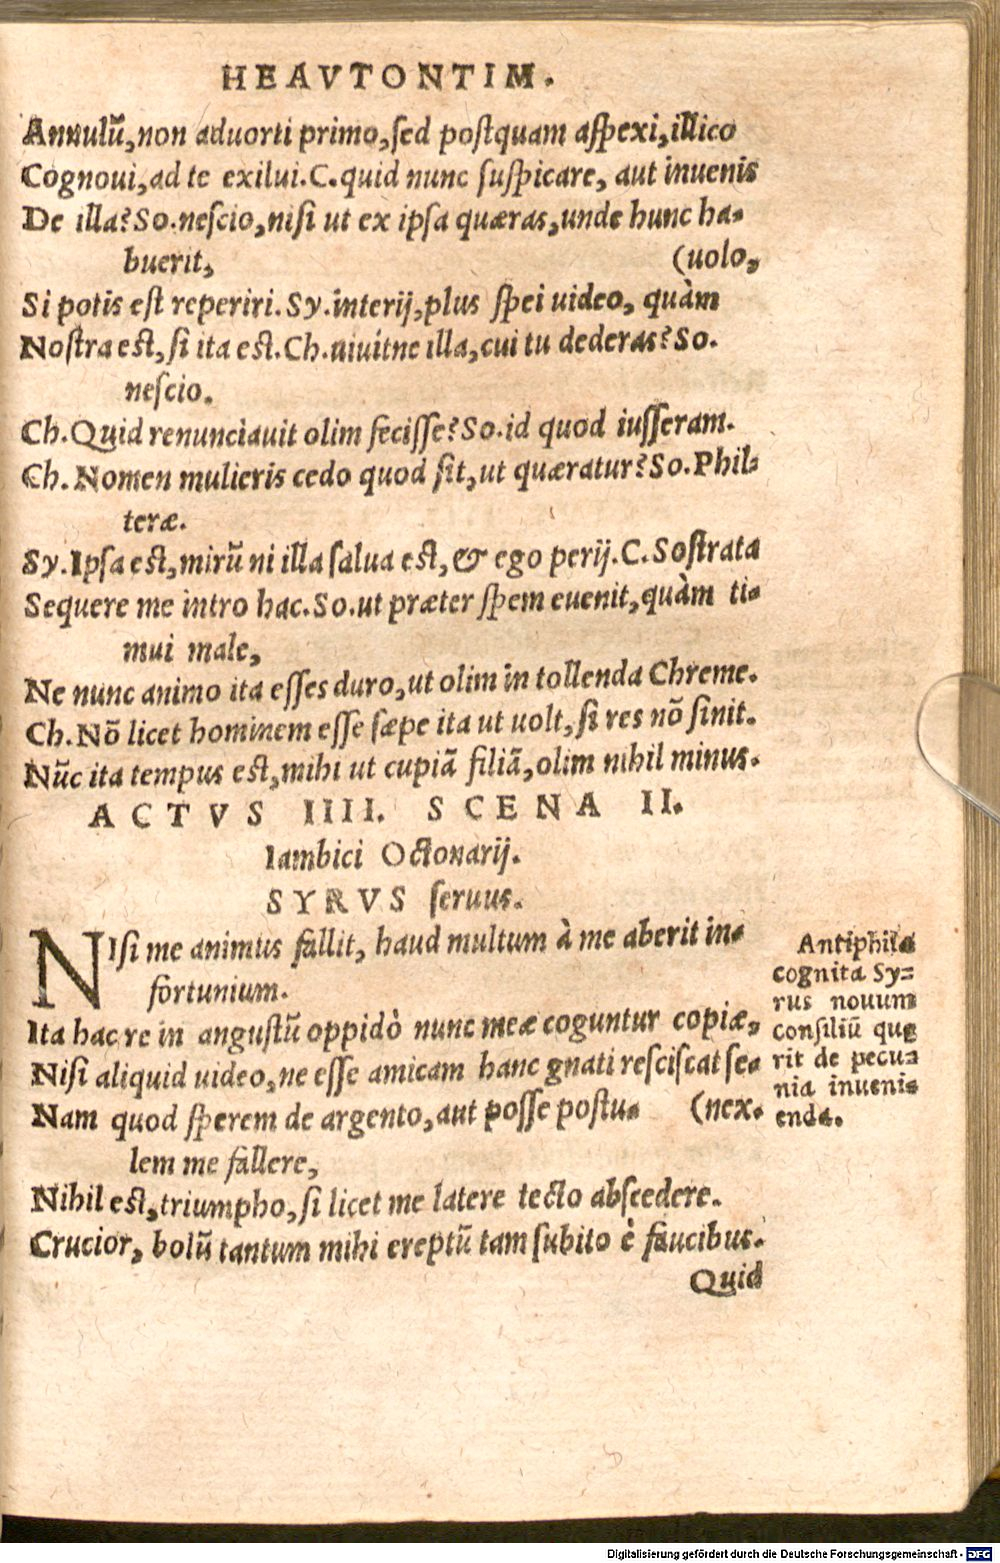 HEAVTONTIM.
Annulũ, non aduorti primo, sed postquam aspexi, illico
Cognoui, ad te exilui. C. quid nunc suspicare, aut inuenis
De illa? So. nescio, nisi ut ex ipsa quæras, unde hunc ha-
buerit, (uolo,
Si potis est reperiri. Sy. interij, plus spei uideo, quàm
Nostra est, si ita est. Ch. uiuitne illa, cui tu dederas? So.
nescio.
Ch. Quid renunciauit olim fecisse? So. id quod iusseram.
Ch. Nomen mulieris cedo quod sit, ut quæratur? So. Phil-
teræ.
Sy. Ipsa est, mirũ ni illa salua est, & ego perij. C. Sostrata
Sequere me intro hac. So. ut præter spem euenit, quàm ti-
mui male,
Ne nunc animo ita esses duro, ut olim in tollenda Chreme.
Ch. Nõ licet hominem esse sæpe ita ut uolt, si res nõ sinit.
Nũc ita tempus est, mihi ut cupiã filiã, olim nihil minus.
ACTVS IIII. SCENA II.
Iambici Octonarij.
SYRVS seruus.
NIsi me animus fallit, haud multum à me aberit in-
fortunium.
Ita hac re in angustũ oppidò nunc meæ coguntur copiæ,
Nisi aliquid uideo, ne esse amicam hanc gnati resciscat se-
Nam quod sperem de argento, aut posse postu- (nex.
lem me fallere,
Nihil est, triumpho, si licet me latere tecto abscedere.
Crucior, bolũ tantum mihi ereptũ tam subito è faucibus.
Quid
Antiphila
cognita Sy-
rus nouum
consiliũ quę
rit de pecu-
nia inueni-
enda.
Digitalisierung gefördert durch die Deutsche Forschungsgemeinschaft - DFG